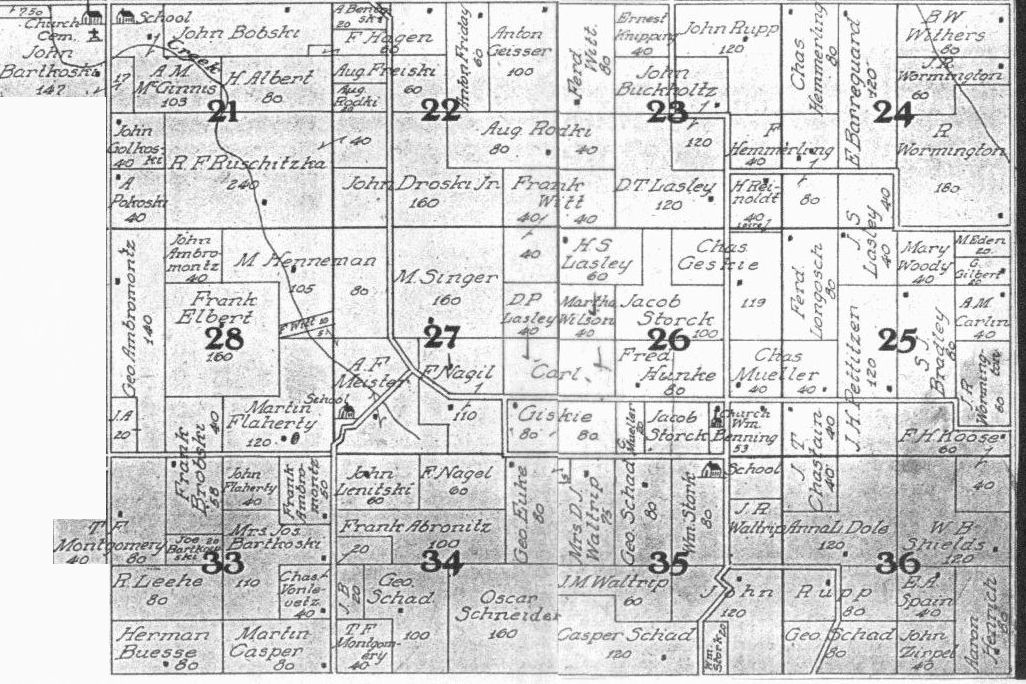 Church
Cem.
John
Bartkoski
147
School
John Bobski
Creek
A. M.
McGinnis
103
17
H. Albert
80
21
John
Golkoski
40
R. F. Ruschitzka
240
A
Pokoski
40
A. Benooski
20
F. Hagen
60
Aug. Freiski
60
Aug.
Rodki
Anton Friday
60
Anton
Geisser
100
22
Ferd Witt
80
Aug Rodki
80
40
40
John Droski Jr.
160
Frank
Witt
40
40
Ernest
Knipping
40
John Rupp
120
John
Buckholtz
23
120
D.T. Lasley
120
F
Hemmerling
40
Chas
Hemmerling
80
E. Banreguard
120
B W
Withers
80
J. R.
Wormington
60
24
R
Wormington
180
H Reinoldt
40
80
J S
Lasley
40
40
Geo. Ambromontz
140
John
Ambromontz
40
M Henneman
105
80
Frank
Elbert
160
28
F Witt 10
M. Singer
160
27
40
D.P.
Lasley
40
H S
Lasley
60
Martha
Wilson
40
Jacob
Storck
100
26
Chas
Geskie
119
Ferd
Longosch
80
Mary
Woody
40
M. Eden
20
G.
Gilbert
A. M.
Carlin
40
25
J. H. Pettitzen
120
S. J.
Bradley
80
J R
Wormington
60
A. F.
Meister
F. Nagil
Carl
Fred
Hunke
80
Chas
Mueller
40
40
J A
20
Frank
Brobski
58
40
Martin
Flaherty
120
School
110
Giskie
80
80
G.
Mueller
Jacob
Storck
Church
Wm.
Benning
53
J T
Chastain
40
40
F. H. Koose
60
T F
Montgomery
40
80
John
Flaherty
40
Frank
Ambromontz
80
John
Lenitski
60
F. Nagel
60
Geo. Buke
80
Mrs D J
Waltrip
75
Geo. Schad
80
Wm. Stork
80
School
J. R.
Waltrip
Anna L Dole
120
W B
Shields
120
Joe
Bartkoski
20
Mrs. Jos
Bartkoski
110
33
Frank Abronitz
100
20
34
35
36
R. Leehe
80
Chas.
Vonlevetz
40
J. B
20
Geo.
Schad
100
Oscar
Schneider
160
J M Waltrip
60
John Rupp
120
80
E. A.
Spain
40
Aaron
Hearrich
Herman
Buesse
80
Martin
Casper
80
T F
Montgomery
40
Casper Schad
120
Wm.
Stork 20
Geo Schad
80
John
Zirpel
40